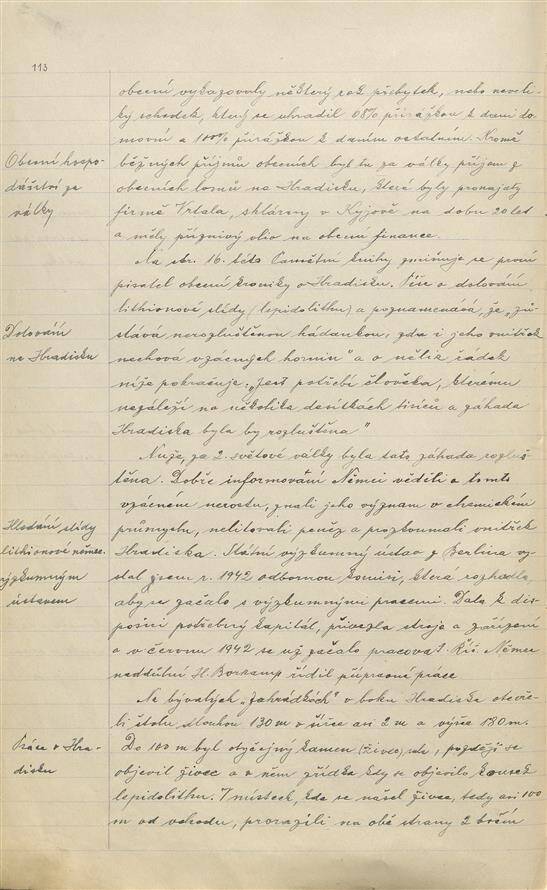 113
obecní vykazovaly některý rok přebytek, nebo neveli-
ký schodek, který se uhradil 68% přirážkou k dani do-
movní a 100% přirážkou k daním ostatním. Kromě
Obecní hospo-
dářství za
války
běžných příjmů obecních byl tu za války příjem z
obecních lomů na Hradisku, které byly pronajaty
firmě Vrtala, sklárny v Kyjově na dobu 20 let
a měly příznivý vliv na obecní finance.
Na str. 16. této Pamětní knihy zmiňuje se první
pisatel obecní kroniky o Hradisku. Píše o dolování
lithionové slídy (lepidolithu) a poznamenává, že „zů-
Dolování
na Hradisku
stává nerozluštěnou hádankou, zda i jeho vnitřek
nechová vzácných hornin" a o několik řádek
níže pokračuje: „Jest potřebí člověka, kterému
nezáleží na několika desítkách tisíců a záhada
Hradiska byla by rozluštěna"
Nuže, za 2. světové války byla tato záhada rozluš-
těna. Dobře informovaní Němci věděli o tomto
vzácném nerostu, znali jeho význam v chemickém
Hledání slídy
lithionové němec.
výzkumným
ústavem
průmyslu, nelitovali peněz a prozkoumali vnitřek
Hradiska. Státní výzkumný ústav z Berlína vy-
slal sem r. 1942 odbornou komisi, která rozhodla,
aby se začalo s výzkumnými pracemi. Dala k dis-
posici potřebný kapitál, přivezla stroje a zařízení
a v červnu 1942 se už začalo pracovat. Říš. Němec
naddůlní H. Borkamp řídil přípravné práce
Na bývalých „Zahrádkách" v boku Hradiska otevře-
li štolu dlouhou 130 m v šířce asi 2 m a výše 180 m.
Práce v Hra-
disku
Do 100 m byl obyčejný kámen (živec), rula, později se
objevil živec a v něm zřídka kdy se objevilo kousek
lepidolithu. Z místech, kde se našel živec, tedy asi 100
m od vchodu, prorazili na obě strany 2 boční